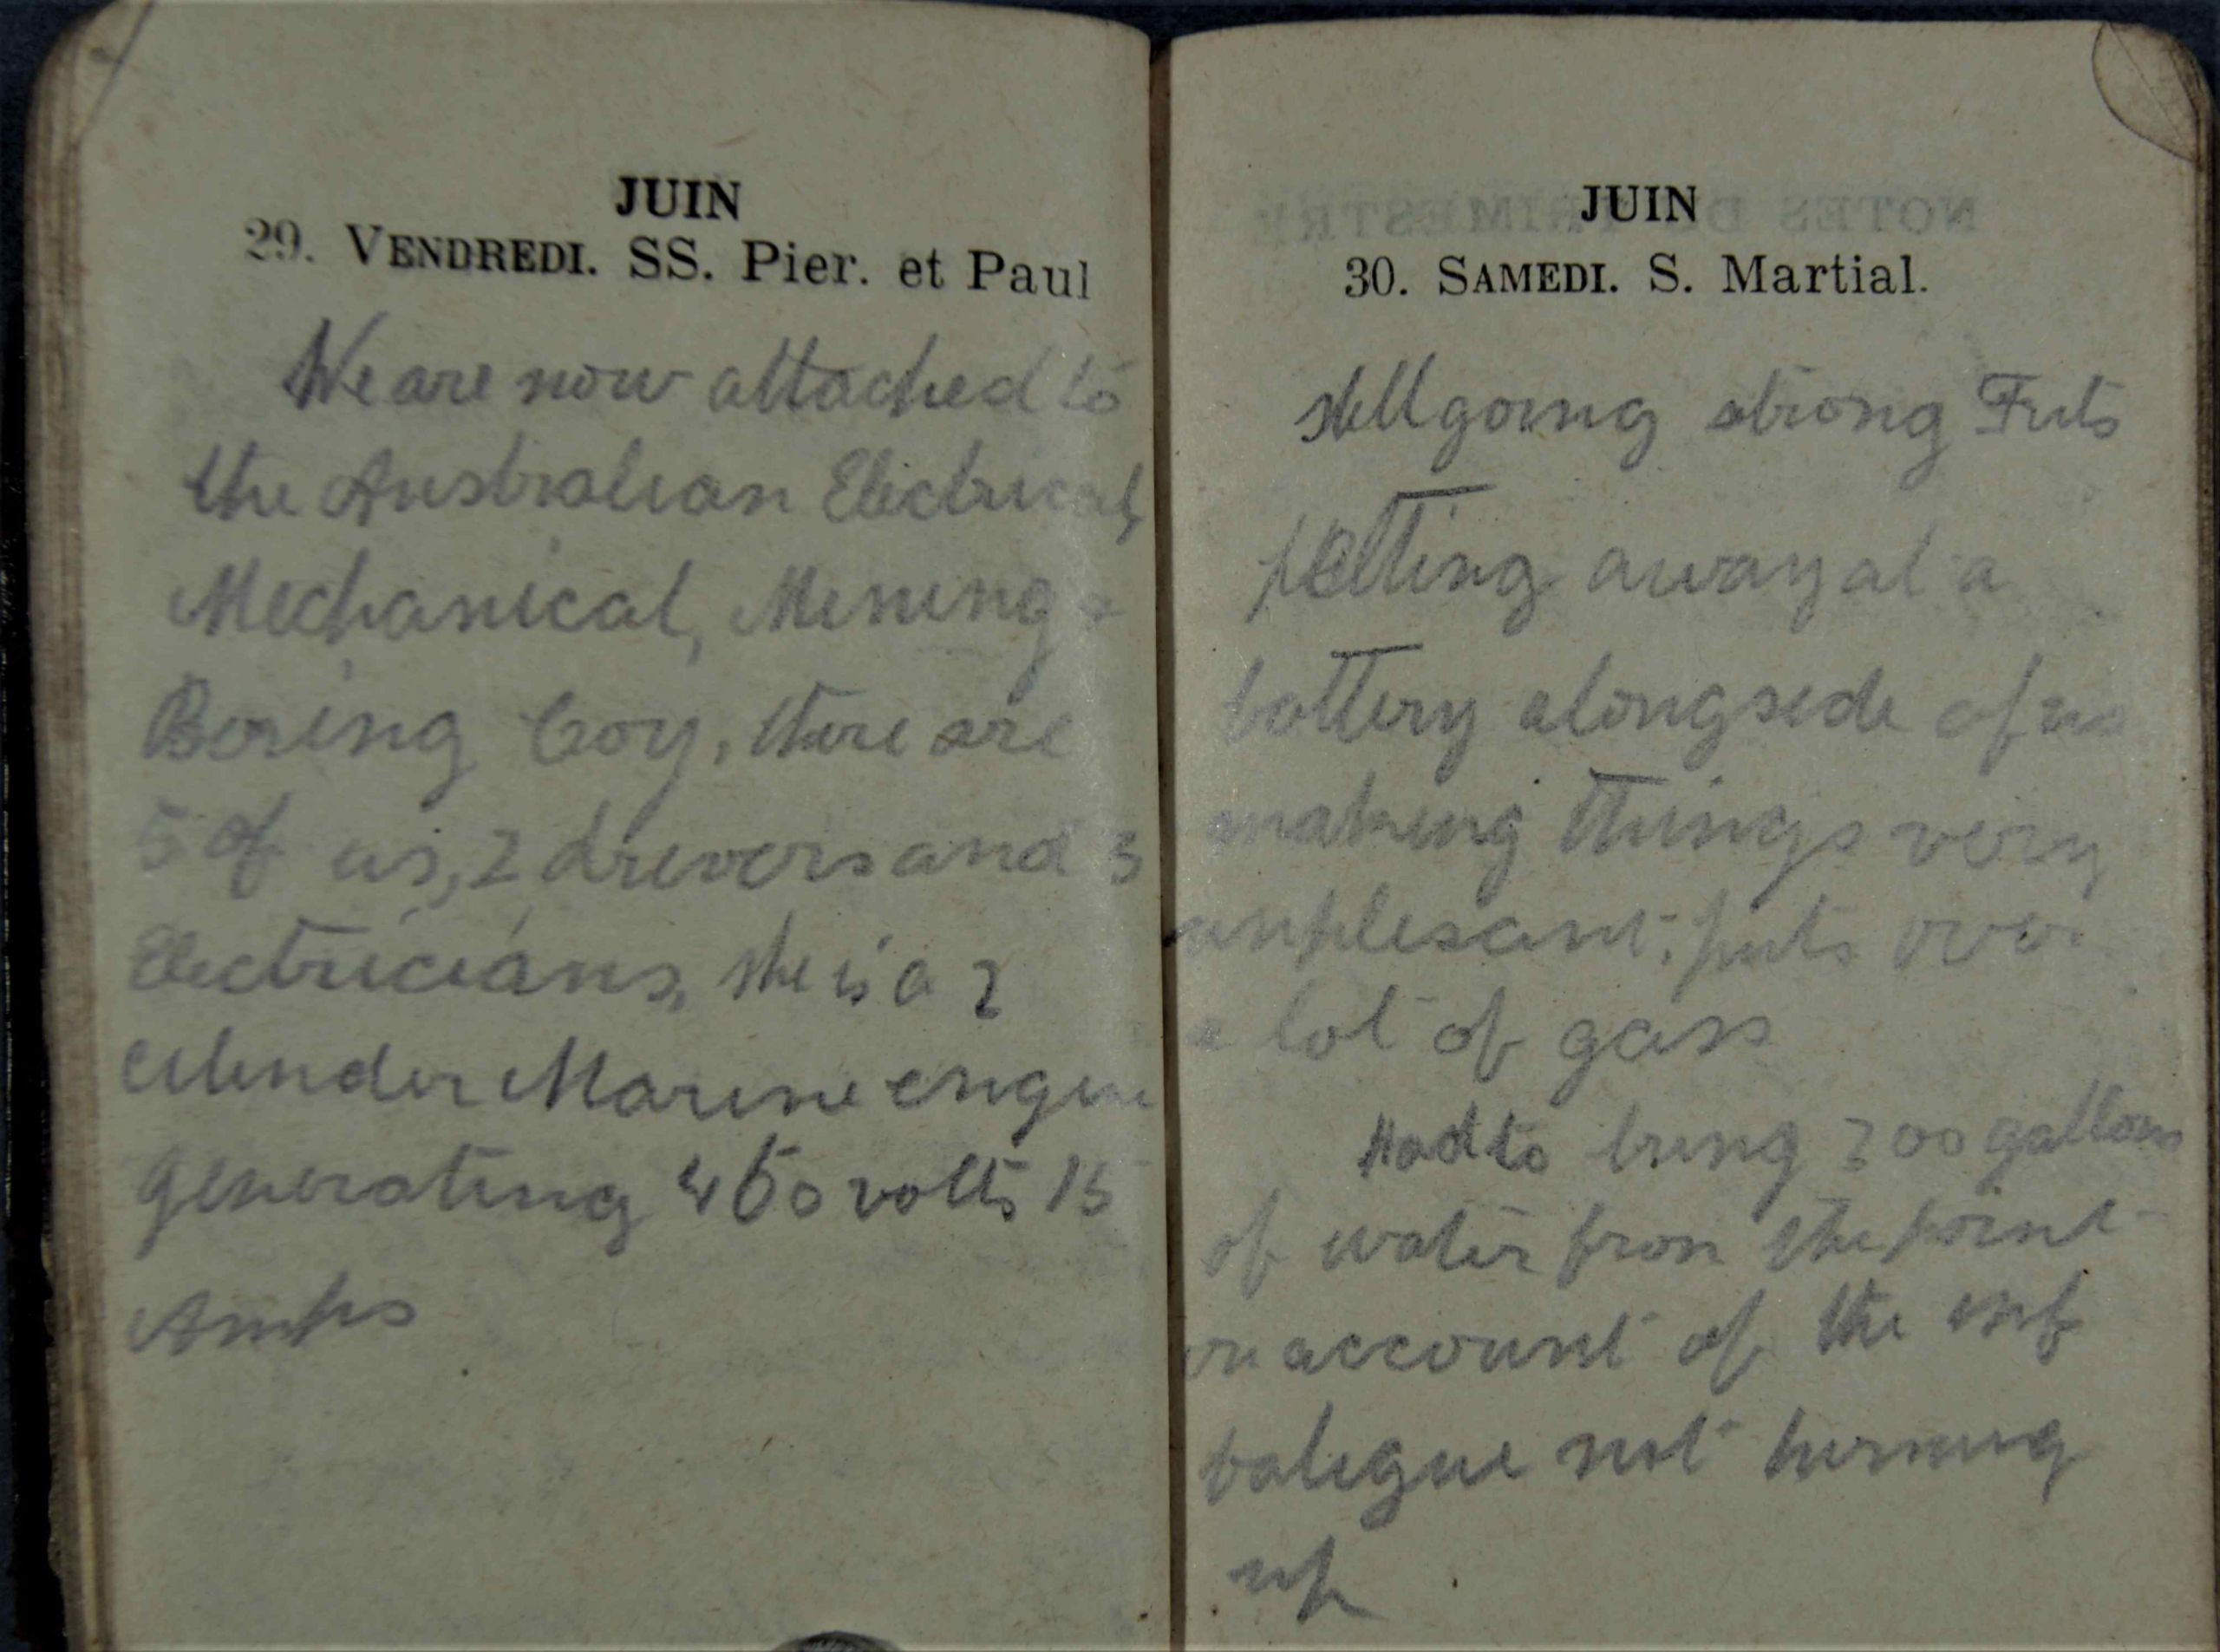 JUIN
29. VENDREDI. SS. Pier. et Paul
We are now attached to
the Australian Electrical,
Mechanical, Mining &
Boring Coy, there are
5 of us, 2 drivers and 3
Electricians, she is a 2
cilinder Marine engine
generating 460 volts 15
Amps
JUIN
30. SAMEDI. S. Martial.
still going strong Frits
pelting away at a
battery alongside of us
making things very
unplesant; puts over
a lot of gass
Had to bring 200 gallons
of water from the point
on account of the inf
batigue not turning
up